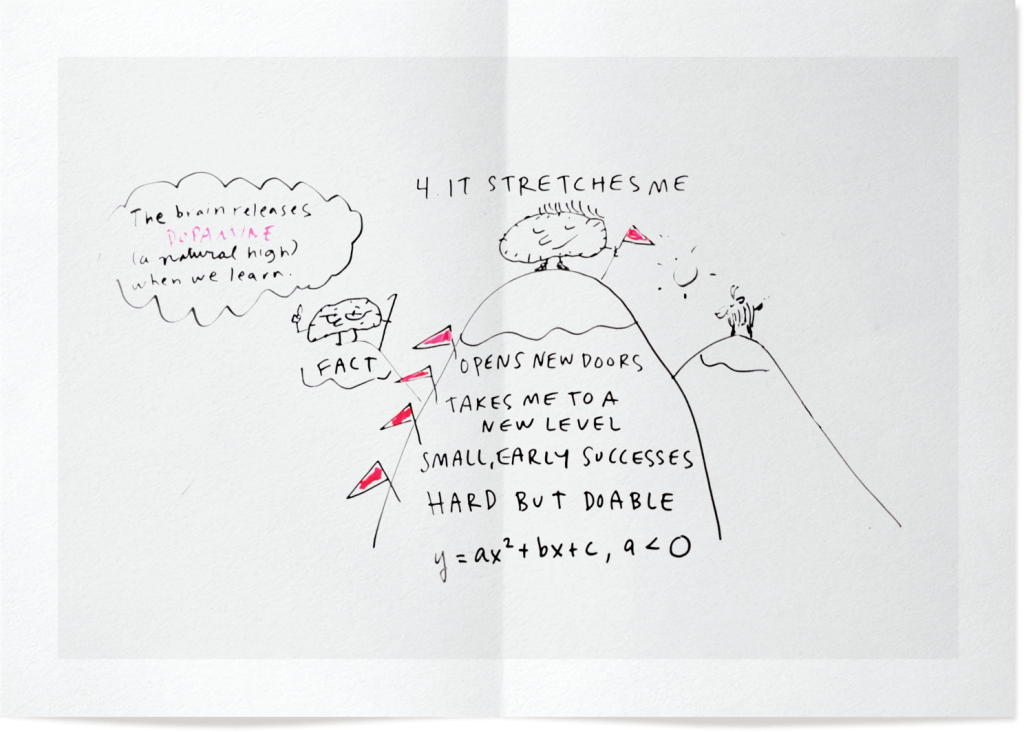 4. IT STRETCHES ME
The brain releases
DOPAMINE
(a natural high)
when we learn.
FACT
OPENS NEW DOORS
TAKES ME TO A
NEW LEVEL
SMALL, EARLY SUCCESSES
HARD BUT DOABLE
y = ax² + bx + c, a < 0